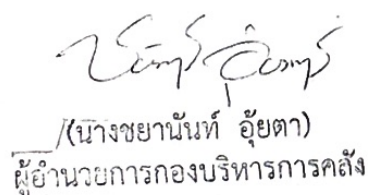 (นางชยานันท์ อุ้ยตา)
ผู้อำนวยการกองบริหารการคลัง